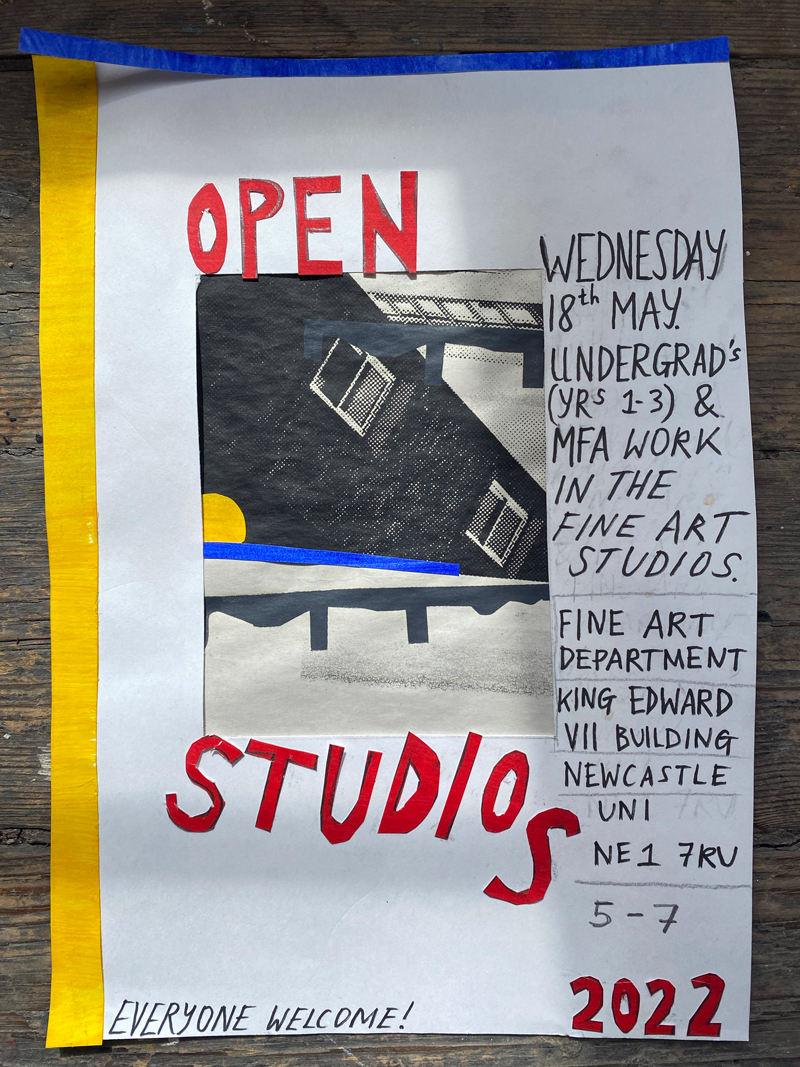 OPEN
STUDIOS
WEDNESDAY
18th MAY.
UNDERGRAD's
(YRS 1-3) &
MFA WORK
IN THE
FINE ART
STUDIOS.
FINE ART
DEPARTMENT
KING EDWARD
VII BUILDING
NEWCASTLE
UNI
NE1 7RU
5-7
2022
EVERYONE WELCOME!